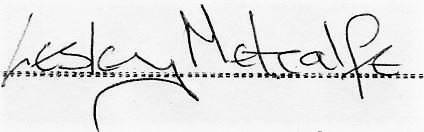 Lesley Metcalfe